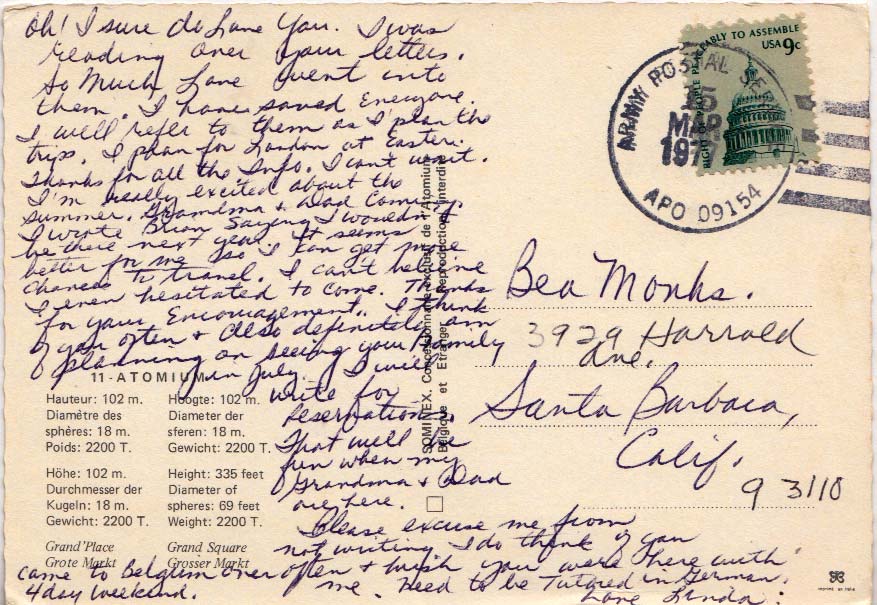 Oh! I sure do Love You. I was
reading over your letters.
So Much Love went into
them. I have saved Everyone.
I will refer to them as I plan the
trips. I plan for London at Easter.
Thanks for all the Info. I can't wait.
I'm really excited about the
summer. Grandma & Dad Coming.
I wrote Brian Saying I wouldn't
be there next year. It seems
better for me so I can get more
chances to travel. I can't believe
I even hesitated to come. Thanks
for your Encouragement. I think
of you often & Also definitely am
planning on seeing your Family
in July. I will
write for
reservations.
That will be
fun when my
Grandma & Dad
are here.
Please excuse me from
not writing. I do think of you
often & wish you were here with
me. Need to be Tutored in German.
Love Linda.
came to Belgium over
4 day weekend.
11 - ATOMIUM
Hauteur: 102 m.
Diamètre des
sphères: 18 m.
Poids: 2200 T.
Hoogte: 102 m.
Diameter der
sferen: 18 m.
Gewicht: 2200 T.
Höhe: 102 m.
Durchmesser der
Kugeln: 18 m.
Gewicht: 2200 T.
Height: 335 feet
Diameter of
spheres: 69 feet
Weight: 2200 T.
Grand'Place
Grote Markt
Grand Square
Grosser Markt
SOMINEX. Concessionnaire exclusif de l'Atomium
Belgique et Etranger Reproduction interdite
RIGHT OF PEOPLE PEACEABLY TO ASSEMBLE
USA 9c
ARMY POSTAL SE
15
MAR
1977
APO 09154
Bea Monks.
3929 Harrold
Ave.
Santa Barbara,
Calif.
93110